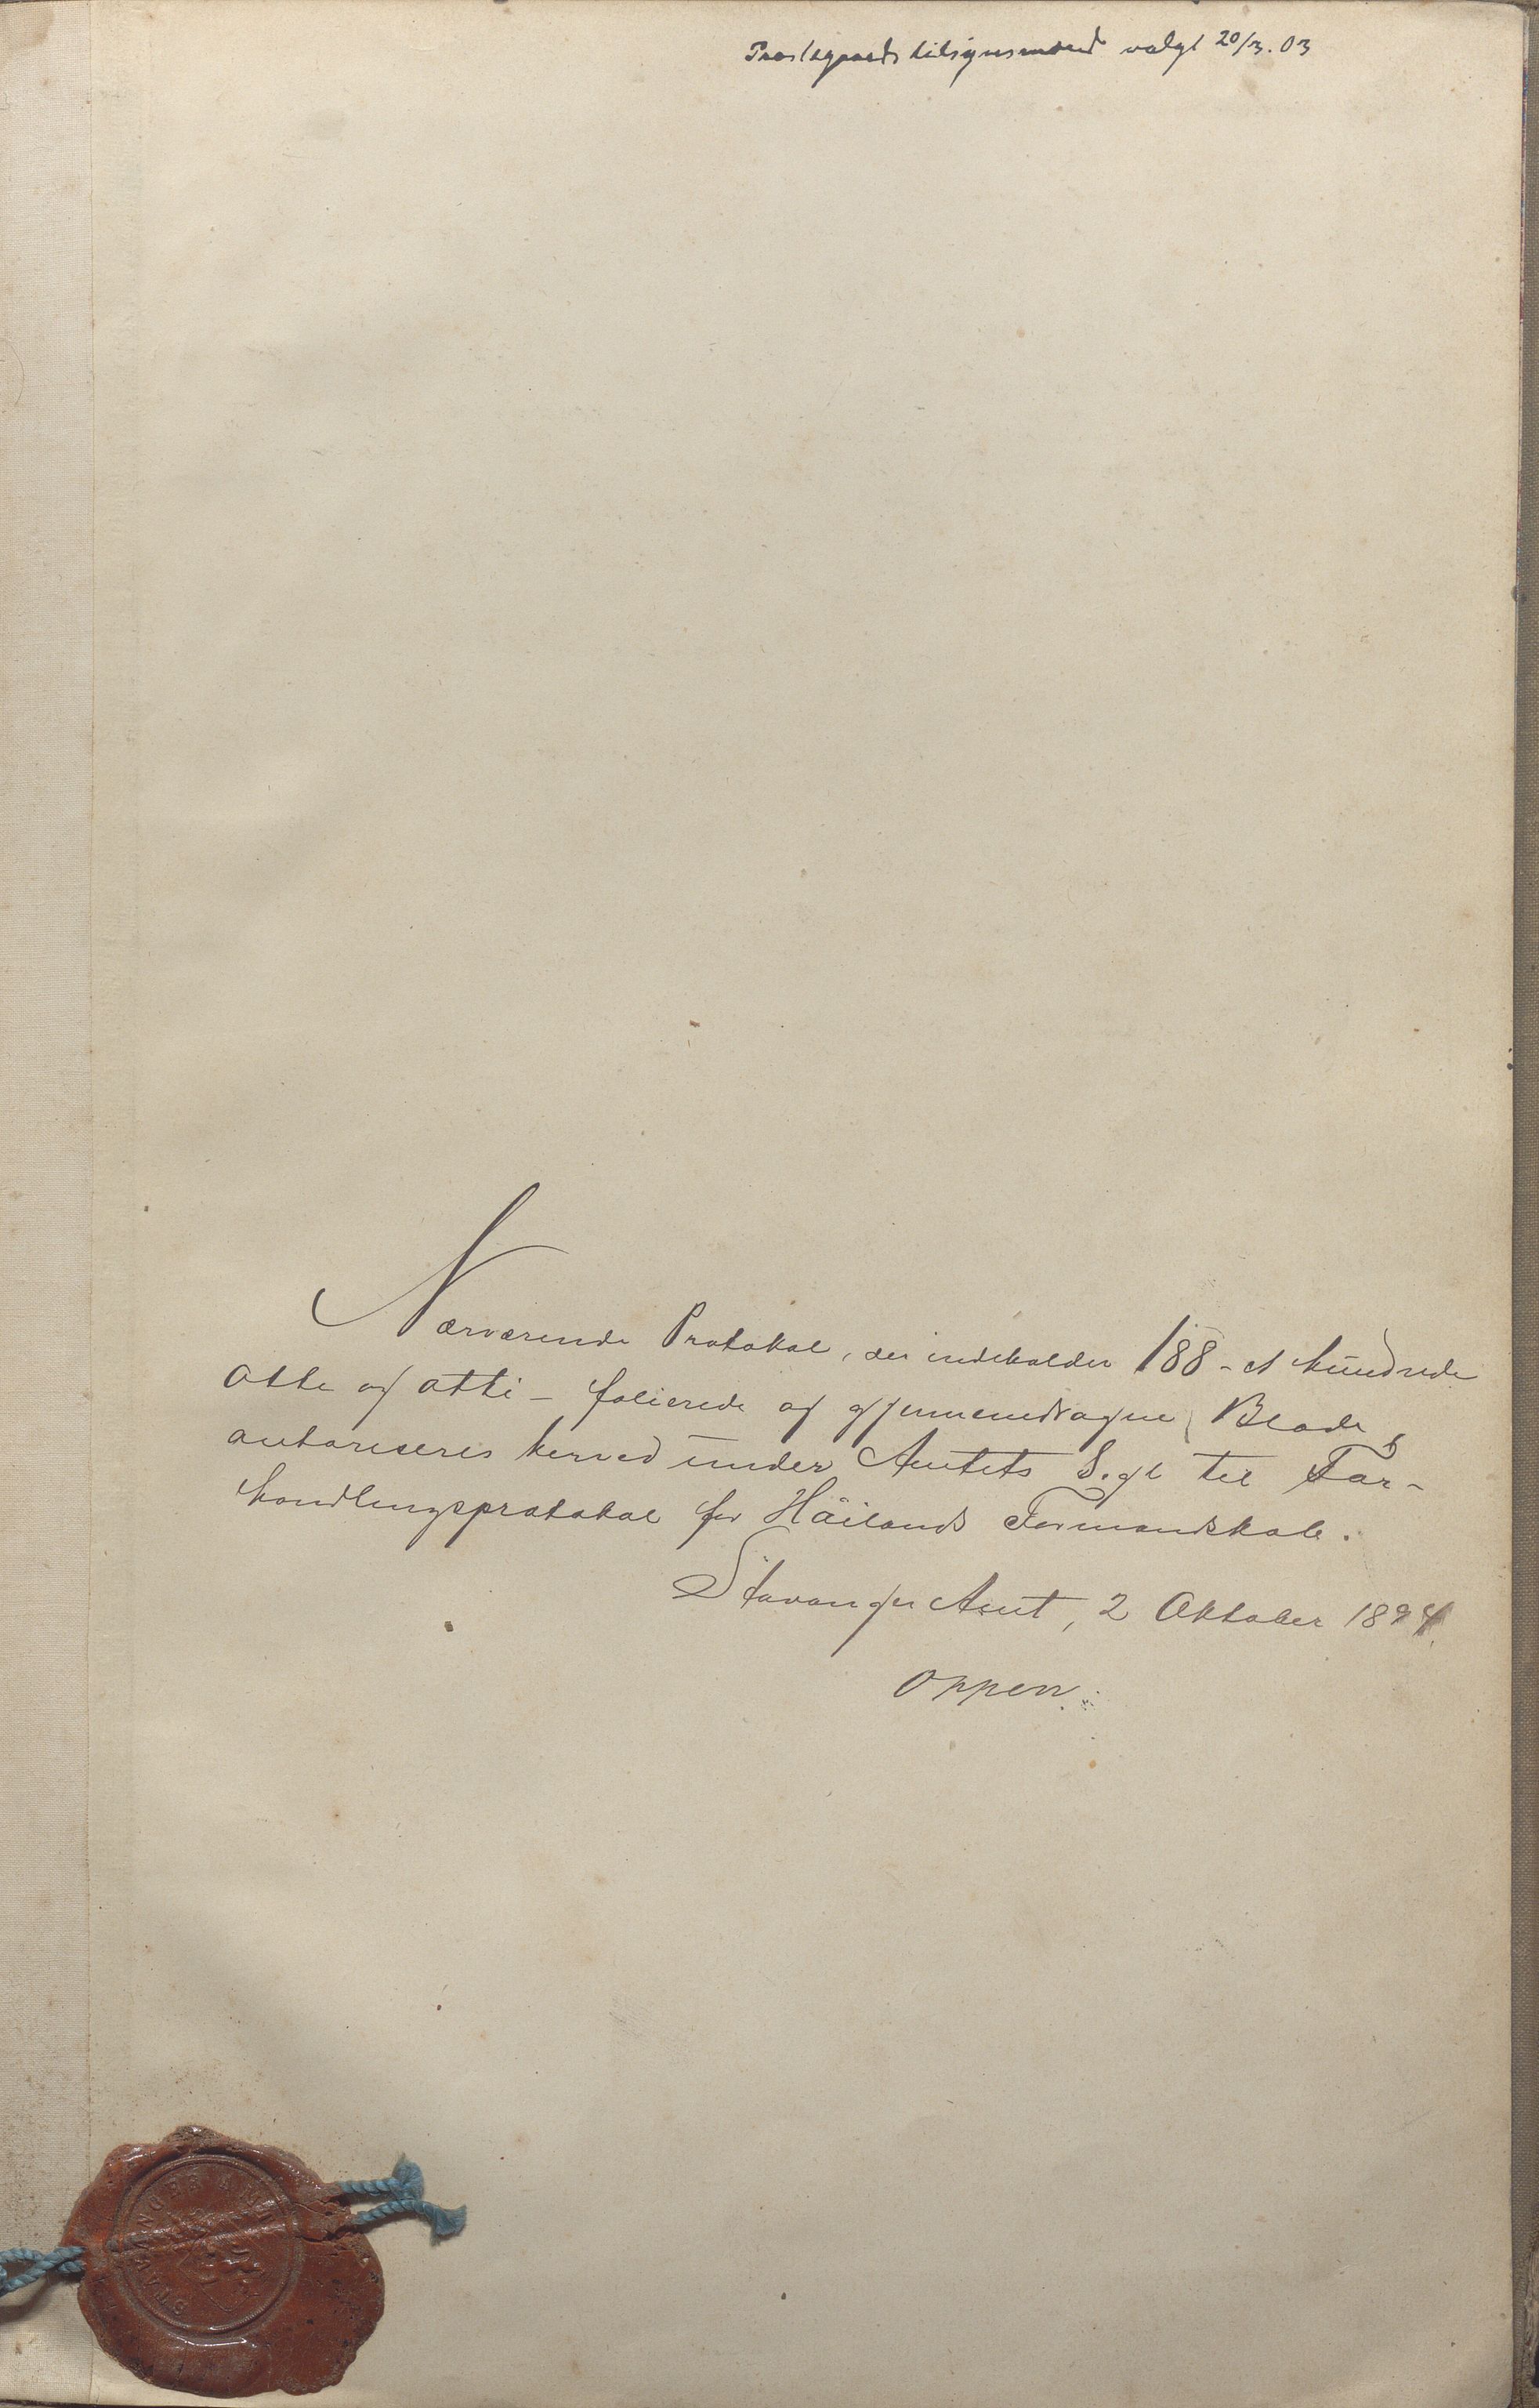 Præstegaards tilsynsmænd valgt 20/3.03
Nærværende Protokol, der indeholder 188 - et hundrede
otte og otti - folierede og gjennemdragne Blade,
autoriseres herved under Amtets Segl til For-
handlingsprotokol for Høilands Formandskab.
Stavanger Amt, 2 Oktober 1894.
Oppen.
STAVANGER AMT